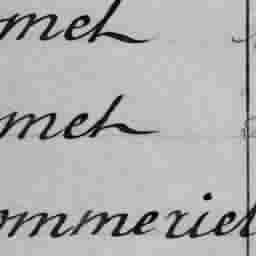 met
met
ommeriet